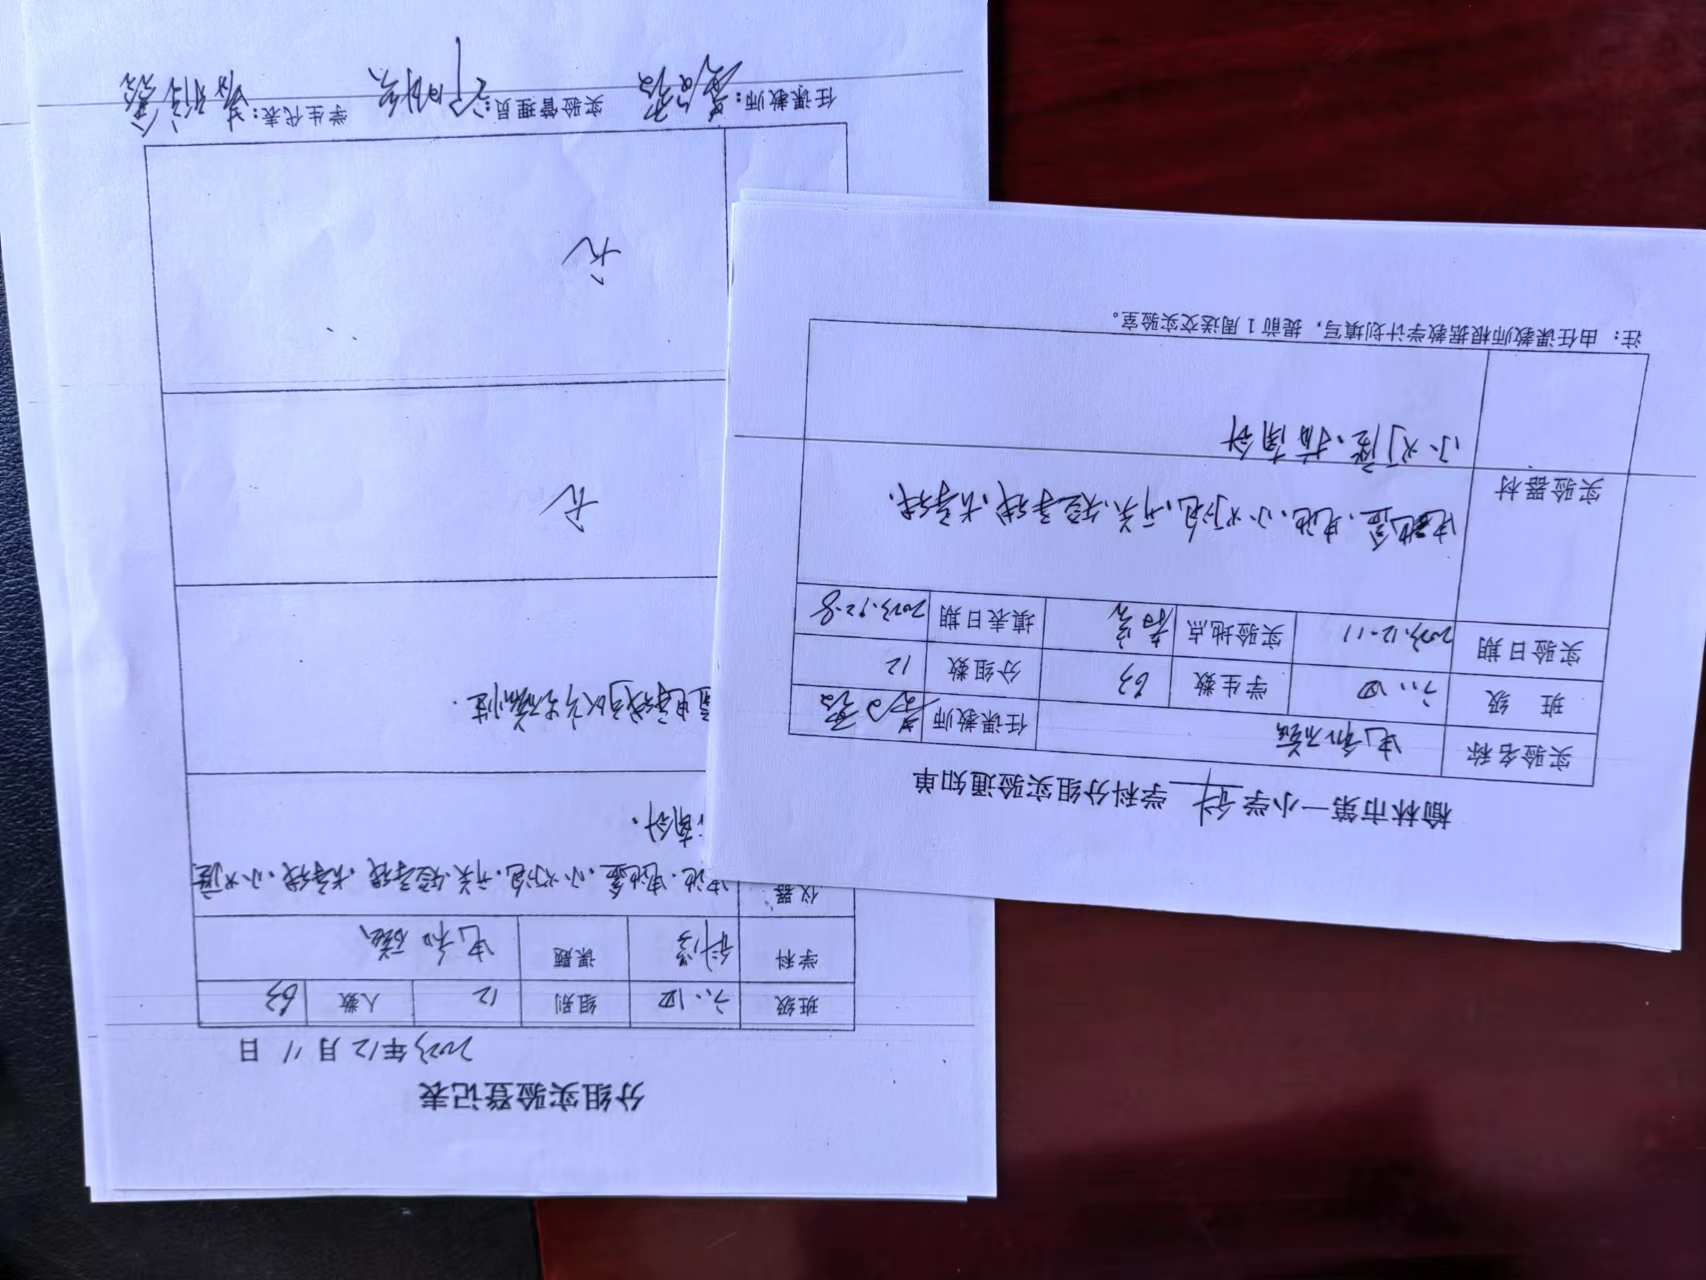 榆林市第一小学 科 学科分组实验通知单
实验名称 电和磁 任课教师
班 级 六.四 学生数 63 分组数 12
实验日期 2023.12.11 实验地点 填表日期 2023.12.8
实验器材 电池盒、电池、小灯泡、开关、短导线、长导线、
小灯座、指南针
注：由任课教师根据教学计划填写，提前1周送交实验室。
分组实验登记表
2023年12月11日
班级 六.四 组别 12 人数 63
学科 科学 课题 电和磁
仪器 电池、电池盒、小灯泡、开关、短导线、长导线、小灯座
南针.
通电导线可以产生磁性.
无
无
任课教师： 实验管理员： 学生代表：